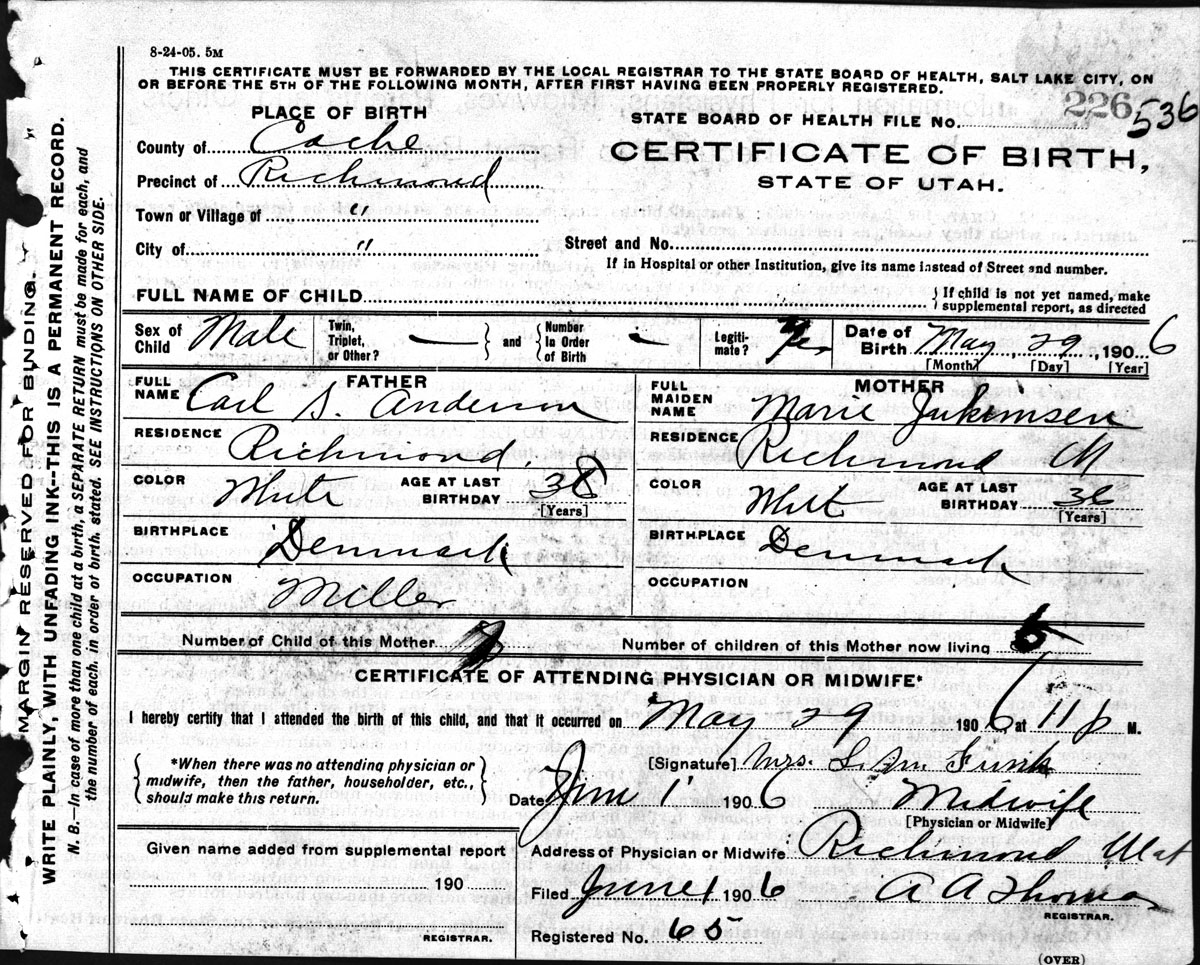 8-24-05. 5M
THIS CERTIFICATE MUST BE FORWARDED BY THE LOCAL REGISTRAR TO THE STATE BOARD OF HEALTH, SALT LAKE CITY, ON
OR BEFORE THE 5TH OF THE FOLLOWING MONTH, AFTER FIRST HAVING BEEN PROPERLY REGISTERED.
MARGIN RESERVED FOR BINDING.
WRITE PLAINLY, WITH UNFADING INK--THIS IS A PERMANENT RECORD.
N. B.--In case of more than one child at a birth, a SEPARATE RETURN must be made for each, and
the number of each, in order of birth, stated. SEE INSTRUCTIONS ON OTHER SIDE.
PLACE OF BIRTH
County of Cache
Precinct of Richmond
Town or Village of "
City of "
STATE BOARD OF HEALTH FILE No. 226 536
CERTIFICATE OF BIRTH,
STATE OF UTAH.
Street and No.
If in Hospital or other Institution, give its name instead of Street and number.
FULL NAME OF CHILD { If child is not yet named, make
supplemental report, as directed
Sex of Child Male
Twin, Triplet, or Other? — } and { Number In Order of Birth —
Legitimate? Yes
Date of Birth May, 29, 1906
[Month] [Day] [Year]
FATHER
FULL NAME Carl S. Anderson
RESIDENCE Richmond
COLOR White AGE AT LAST BIRTHDAY 38
[Years]
BIRTHPLACE Denmark
OCCUPATION Miller
MOTHER
FULL MAIDEN NAME Marie
RESIDENCE Richmond
COLOR White AGE AT LAST BIRTHDAY 36
[Years]
BIRTHPLACE Denmark
OCCUPATION
Number of Child of this Mother
Number of children of this Mother now living 6
CERTIFICATE OF ATTENDING PHYSICIAN OR MIDWIFE*
I hereby certify that I attended the birth of this child, and that it occurred on May 29 1906 at 11 p M.
{ *When there was no attending physician or
midwife, then the father, householder, etc.,
should make this return. }
[Signature] Mrs. Funk
Date June 1 1906 Midwife
[Physician or Midwife]
Given name added from supplemental report
190
REGISTRAR.
Address of Physician or Midwife Richmond Utah
Filed June 1 1906 A A Thomas
REGISTRAR.
Registered No. 65
(OVER)